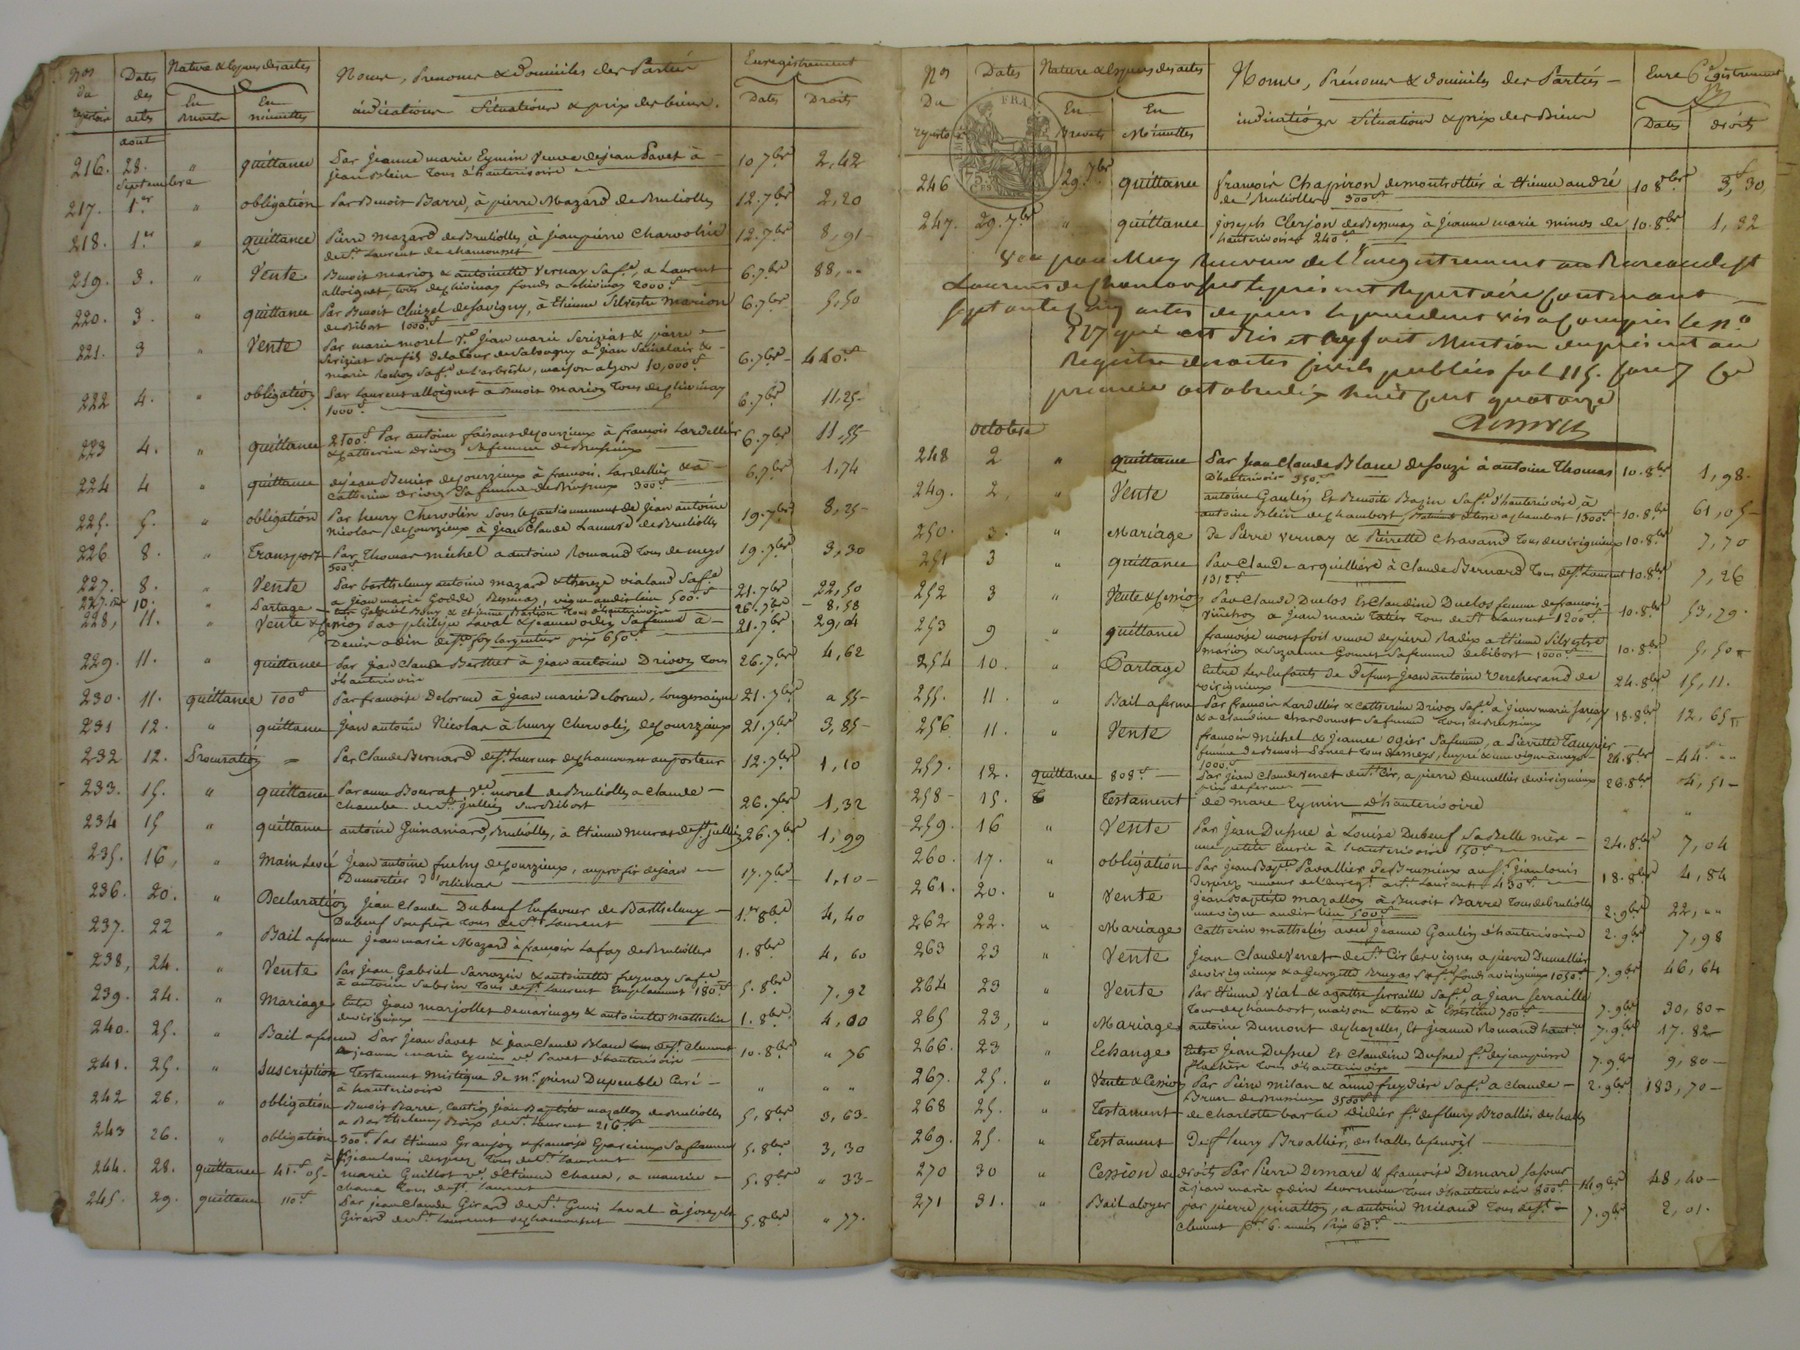 Nos Du repertoire
Dates des actes
Nature & especes des actes
En Brevets
En minuttes
Noms, Prenoms & Domiciles des Parties
indications Situations & prix des biens.
Enregistrement
Dates
Droits
aout
216. 28. " quittance Par jeanne marie Eymin veuve de jean Pavet à 10. 7bre 2,42
jean Blein tous d'hauterivoire
Septembre
217. 1er " obligation Par Benoit Barre, à pierre Mazard de Brulliolles 12. 7bre 2,20
218. 1er " Quittance Pierre Mazard de Brulliolles, à jean pierre Charvolin 12. 7bre 8,91
de St Laurent de chamousset
219. 3. " Vente Benoit marion & antoinette Vernay Sa fe, a Laurent 6. 7bre 88,"
alloignet, tous de chivinay fonds a chivinay 2000f
220. 3. " quittance Par Benoit Cluizel de Savigny, à Etienne Silvestre Marion 6. 7bre 5,50
de Bibost 1000f
221. 3 " Vente Par marie morel Ve jean marie Seriziat & pierre
Seriziat Son fils de la tour de Salvagny à jean Sainclair &
marie Rochon Sa fe de l'arbresle, maison a lyon 10,000f 6. 7bre 440f
222 4. " obligation Par Laurent alloignet a Benoit marion tous de chivinay 6. 7bre 11,25
1000f
223 4. " quittance 2100f Par antoine de courzieux à françois Lardellier 6. 7bre 11,55
& Catherine drivon Sa femme de Brussieux
224 4 " quittance de jean Benier de courzieux à francois Lardellier & à 6. 7bre 1,74
Catherine drivon Sa femme de Brussieux 300f
225. 5. " obligation Par henry Chervolin Sous le cautionnement de jean antoine 19. 7bre 8,25
Nicolas, de courzieux à jean Claude de Brulliolles
226 8. " Transport Par Thomas michel a antoine Romand tous de meys 19. 7bre 3,30
300f
227. 8. " Vente Par barthelemy antoine mazard & thereze vialand Sa fe 21. 7bre 22,50
a jean marie Goëde Bessenay, vigne au dit lieu 500f
227. bis 10. " Partage entre Gabriel Bony & etienne Bastion tous d'hauterivoire 26. 7bre 8,58
228, 11. " Vente & cession Par philipe Laval & jeanne odin Sa femme à 21. 7bre 29,04
Denis odin de Ste foy largentiere prix 650f
229. 11. " quittance Par jean Claude Berthet à jean antoine Drivon tous 26. 7bre 4,62
d'hauterivoire
230. 11. quittance 100f Par francoise Delorme à jean marie Delorme, Longessaigne 21. 7bre " 55
231 12. " quittance jean antoine Nicolas à henry Chervolin, de Courzieux 21. 7bre 3,85
232 12. Procuration = Par Claude Bernard de St Laurent de chamousset au porteur 12. 7bre 1,10
233. 15. " quittance Par anne Bourrat Ve morel de Brulliolles a claude 26. 7bre 1,32
Chambe de St jullien Sur Bibost
234 15 " quittance antoine Guinamard, Brulliolles, à Etienne murat de St jullien 26. 7bre 1,99
235. 16, " Main Levée jean antoine de courzieux, au profit de jean 17. 7bre 1,10
Dumortier d'orlienas
236. 20. " Declaration jean Claude Dubeuf En faveur de Barthelemy 1.er 8bre 4,40
Dubeuf Son frere tous de St Laurent
237. 22 " Bail a ferme jean marie Mazard à francois Lafay de Brulliolles 1. 8bre 4,60
238, 24. " Vente Par jean Gabriel Sarrazin & antoinette freynay Sa fe 5. 8bre 7,92
à antoine Sabrin tous de St Laurent Emplacement 180f
239. 24. " Mariage Entre jean marjollet de maringes & antoinette Mathelin 1. 8bre 4,00
de virigneux
240. 25. " Bail a ferme Par jean Pavet & jean Claude Blanc de St Clement 10. 8bre " 76
& jeanne marie Eymin ve Pavet d'hauterivoire
241. 25. " Suscription Testament mistique de mr pierre Dupeuble Curé " " "
à hauterivoire
242 26. " obligation Benoit Barre, Caution jean Baptiste mazallon de Brulliolles 5. 8bre 3,63
a Barthelemy de St Laurent 216f
243 26. " obligation 300f Par Etienne Granjon & francoise Sa femme 5. 8bre 3,30
à jean louis desprez tous de St Laurent
244. 28. quittance 41f 05 marie Guillot ve d'Etienne Chana, a maurice 5. 8bre " 33
chana tous de St Laurent
245. 29. quittance 110f Par jean Claude Girard de St Genis Laval à joseph 5. 8bre " 77.
Girard de St Laurent de chamousset
Nos Du repertoire
Dates
Nature & especes des actes
En Brevets
En Minuttes
Noms, Prénoms & domiciles des Parties
indications Situations & prix des Biens
Enregistrement
Dates
droits
246 29. 7bre quittance francois Chapiron de montrottier à Etienne andré 10 8bre 3f 30
de Brulliolles 300f
247. 29. 7bre " quittance joseph Clerjon de Bessenay à jeanne marie minos de 10. 8bre 1,32
hauterivoire 240f
Vu par Moy Receveur de l'enregistrement au Bureau de St
Laurent de chamousset le présent Repertoire Contenant
Septante Cinq actes depuis le precedent visa Compris le No
247 qui est Pris et ay fait Mention du présent au
Registre des actes Civils publics fol 115. Case 7 Ce
premier octobre dix huit Cent quatorze
octobre
248 2 " quittance Par Jean Claude Blanc de Souzi à antoine Thomas 10. 8bre 1,98.
D'hauterivoire 350f
249. 2, " Vente antoine Goulin Et Benoite Bazin Sa fe d'hauterivoire, à
antoine Blein de chambost, terre a chambost 1300f 10. 8bre 61,05
250. 3. " Mariage De Pierre Vernay & Pierrette Chavand tous de virigneux 10. 8bre 7,70
251 3 " quittance Par Claude arquilliere à Claude Bernard tous de St Laurent 10. 8bre 7,26
1312f
252 3 " Vente & Cession Par Claude Duclos Et Claudine Duclos femme de francois 10. 8bre 53,29.
à jean marie tous de St Laurent 1200f
253 9 " quittance francoise montfort veuve de pierre Radix a Etienne Silvestre 10. 8bre 5,50
marion & Suzanne Gonnet Sa femme de bibost 1000f
254 10. " Partage Entre Les Enfants de Defunt jean antoine Vercherand de 24. 8bre 15,11.
virigneux
255. 11. " Bail a ferme Par francois Lardellier & Catherine Drivon Sa fe à jean marie 18. 8bre 12,65
& a claudine chardonnet Sa femme tous de Brussieux
256 11. " Vente francois Michel & jeanne ogier Sa femme, a Pierrette
femme de Benoit tous de meys, 24. 8bre 44f "
1000f
257. 12. quittance 808f Par jean Claude Venet de St Cir, a pierre Dumellier de virigneux 26. 8bre 4,51
prix de ferme
258 15. Testament de marc Eymin d'hauterivoire " "
259. 16 " Vente Par jean Dusne à Louise Dubeuf Sa Belle mère 24. 8bre 7,04
une petite à hauterivoire 150f
260. 17. " obligation Par jean Bapte Pavallier de Brussieux au Sr jean louis 18. 8bre 4,84
desprez receveur de l'enregt a St Laurent 430f
261. 20. " Vente jean Baptiste mazallon à Benoit Barre tous de brulliolles 2. 9bre 22,"
une vigne au dit lieu 500f
262 22. " Mariage Catherin mathelin avec jeanne Goulin d'hauterivoire 2. 9bre 7,98
263 23 " Vente jean Claude Venet de St Cir les vignes a pierre Dumellier
de virigneux & a Georgette Bruyas Sa fe fonds a virigneux 1050f 7. 9bre 46,64
264 23 " Vente Par Etienne Vial & agathe ferraille Sa fe, a jean ferraille
tous de chambost, maison & terre à 700f 7. 9bre 30,80
265 23, " Mariage antoine Dumont de chazelles, Et jeanne Romand 7. 9bre 17.82
266. 23 " Echange Entre jean Dusne Et Claudine Dusne fe de jean pierre 7. 9bre 9,80
tous d'hauterivoire
267. 25. " Vente & Cession Par Pierre milan & anne freydiere Sa fe a claude 2. 9bre 183,70
Brun de Brussieux 3500f
268 25. " Testament de Charlotte barlec Didier fe de fleury Broallier des halles
269. 25. " Testament De fleury Broallier, des halles le fenoyl
270 30 " Cession de droits Par Pierre Demare & francoise Demare Sa Sœur 14 9bre 48,40
à jean marie odin Leur neveu tous d'hauterivoire 800f
271 31. " Bail a loyer par pierre pinatton, a antoine Milaud tous de St 7. 9bre 2,01.
Clement pr 6. années Prix 65f